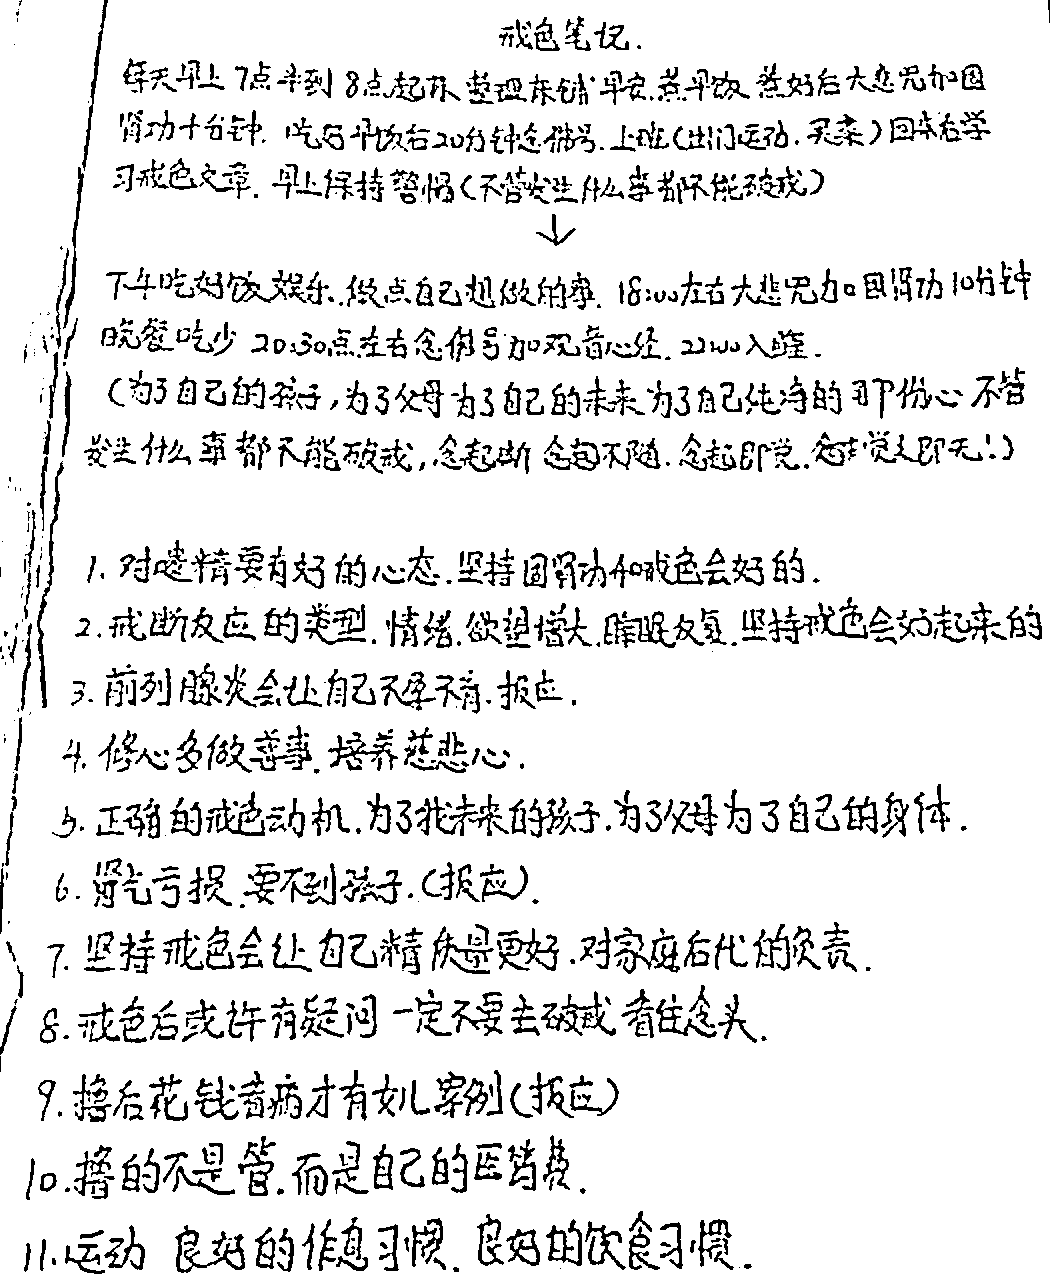 戒色笔记.
每天早上7点半到8点起床 整理床铺 早安.煮早饭 煮好后大悲咒加固
肾功十分钟. 吃好早饭后20分钟念佛号.上班(出门运动.买菜)回来后学
习戒色文章. 早上保持警惕(不管发生什么事都不能破戒)
↓
下午吃好饭娱乐.做点自己想做的事. 18:00左右大悲咒加固肾功10分钟
晚餐吃少 20:30点左右念佛号加观音心经. 22:00入睡.
(为了自己的孩子,为了父母为了自己的未来为了自己纯净的那份心 不管
发生什么事都不能破戒,念起断 念起不随.念起即觉.觉之即无!)
1.对遗精要有好的心态.坚持固肾功和戒色会好的.
2.戒断反应的类型.情绪.欲望增大.睡眠反复.坚持戒色会好起来的
3.前列腺炎会让自己不孕不育.报应.
4.修心多做善事.培养慈悲心.
5.正确的戒色动机.为了我未来的孩子.为了父母为了自己的身体.
6.肾气亏损.要不到孩子.(报应).
7.坚持戒色会让自己精质量更好.对家庭后代的负责.
8.戒色后或许有疑问 一定不要去破戒 看住念头.
9.撸后花钱看病才有女儿案例(报应)
10.撸的不是管.而是自己的医药费.
11.运动 良好的作息习惯. 良好的饮食习惯.